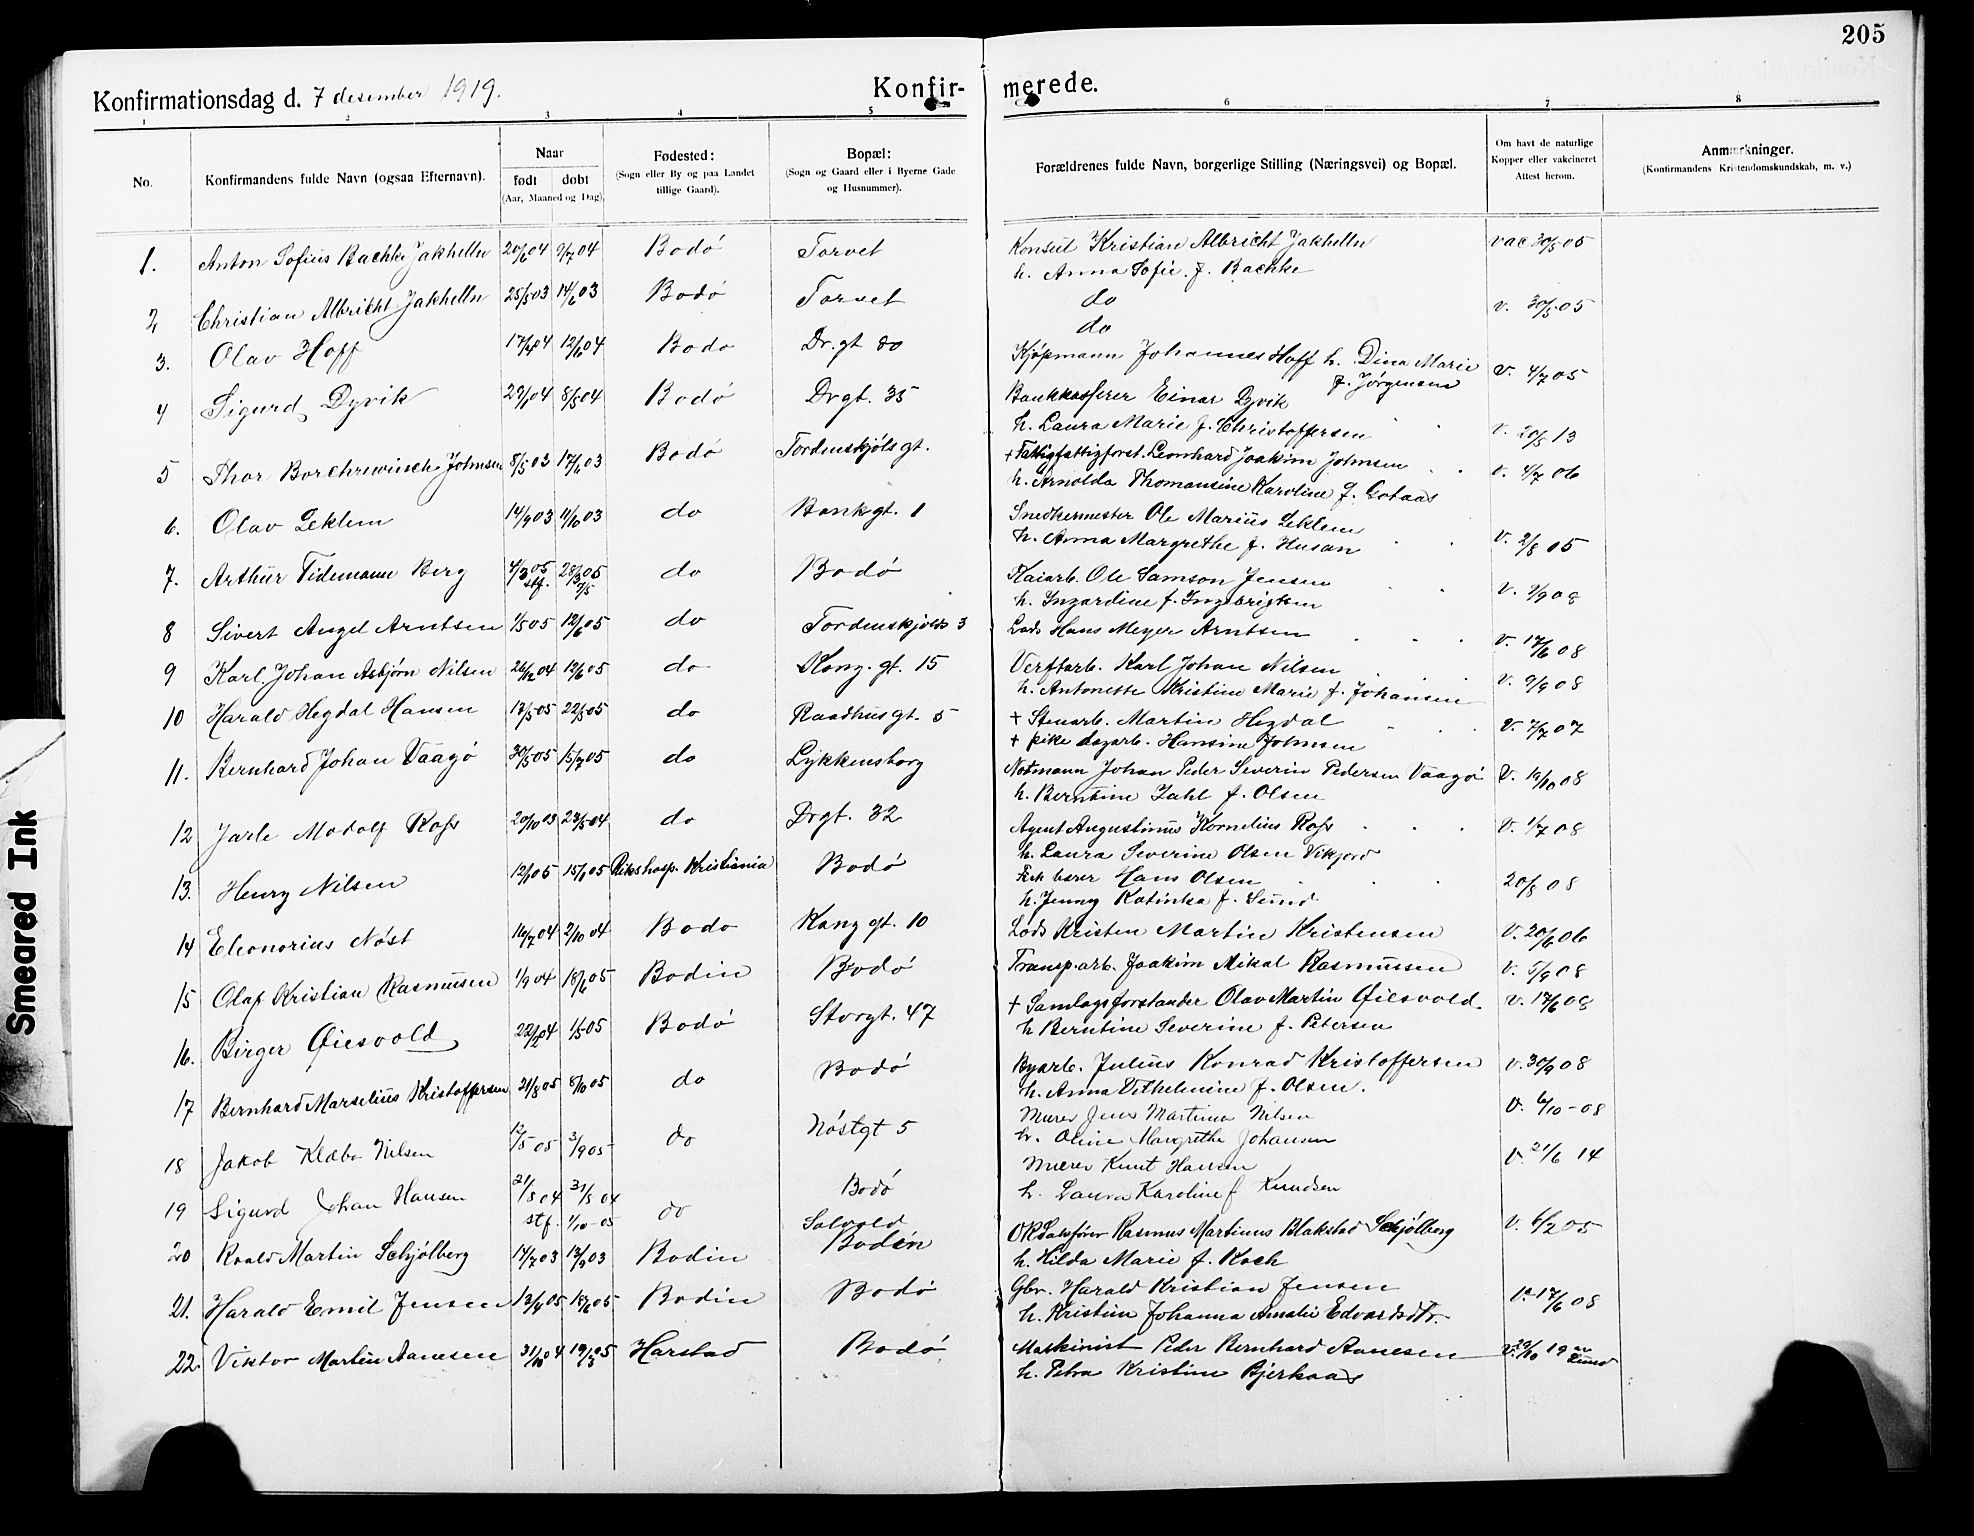 205
Konfirmationsdag d. 7 desember 1919.
Konfir-
merede.
1 2 3 4 5 6 7 8
No.
Konfirmandens fulde Navn (ogsaa Efternavn).
Naar
født døbt
(Aar, Maaned og Dag).
Fødested:
(Sogn eller By og paa Landet
tillige Gaard).
Bopæl:
(Sogn og Gaard eller i Byerne Gade
og Husnummer).
Forældrenes fulde Navn, borgerlige Stilling (Næringsvei) og Bopæl.
Om havt de naturlige
Kopper eller vakcineret
Attest herom.
Anmærkninger.
(Konfirmandens Kristendomskundskab, m. v.)
1. Anton Sofius Bachke Jakhelln 20/6 04 9/7 04 Bodø Torvet Konsul Kristian Albricht Jakhelln vac 30/5 05
h. Anna Sofie f. Bachke
2 Christian Albricht Jakhelln 25/5 03 14/6 03 Bodø Torvet do v. 30/5 05
do
3. Olav Hoff 12/6 04 Bodø Dr.gt 80 Kjøpmann Johannes Hoff h. Dina Marie v. 4/7 05
f. Jørgensen
4 Sigurd Dyvik 8/5 04 Bodø Drgt. 35 Bankkasserer Einar Dyvik
h. Laura Marie f. Christoffersen v. 20/5 13
5 Thor Johnsen 8/5 03 17/6 03 Bodø Tordenskjolsgt. + Leonhard Joakim Johnsen v. 4/7 06
h. Arnolda Thomansine Karoline f. Gotaas
6. Olav Leklem 14/9 03 11/10 03 do Bankgt. 1 Snedkermester Ole Marius Leklem
h. Anna Margrethe f. Husan v. 2/8 05
7. Arthur Tidemann Berg 4/3 05 28/3 05 do Bodø Kaiarb. Ole Samson Jensen
stf.
h. Ingardine f. Ingebrigtsen v. 9/9 08
8 Sivert Angel Arntsen 1/5 05 12/6 05 do Tordenskjolds 3 Lods Hans Meyer Arntsen v. 17/6 08
9 Karl Johan Asbjørn Nilsen 26/12 04 12/6 05 do Kong. gt. 15 Verftarb. Karl Johan Nilsen
h. Antonette Kristine Marie f. Johansen v. 9/9 08
10 Harald Hegdal Hansen 13/5 05 22/5 05 do Raadhusgt. 5 + Stenarb. Martin Hegdal v. 7/7 07
+ pike dagarb. Hansine Johnsen
11. Bernhard Johan Vaagø 30/5 05 15/7 05 do Lykkensborg Notmann Johan Peder Severin Pedersen Vaagø v. 19/10 08
h. Berntine Zahl f. Olsen
12 Jarle Modolf Rofs 20/10 03 23/5 04 do Drgt. 32 Agent Augustinus Kornelius Rofs v. 1/7 08
h. Laura Severine Olsen Vikjord
13. Henry Nilsen 12/1 05 15/1 05 Rikshosp. Kristiania Bodø Fisk bærer Hans Olsen 20/8 08
h. Jenny Katinka f. Sund.
14 Eleonorius Nøst 16/7 04 2/10 04 Bodø Kong gt. 10 Lods Kristen Martin Kristensen v. 20/6 06
15 Olaf Kristian Rasmussen 1/9 04 18/6 05 Bodin Bodø Transp.arb. Joakim Mikal Rasmussen v. 5/9 08
16. Birger Øiesvold 22/12 04 1/5 05 Bodø Storgt. 47 + Samlagsforstander Olav Martin Øiesvold v. 17/6 08
h Berntine Severine f. Petersen
17 Bernhard Marselius Kristoffersen 21/8 05 8/10 05 do Bodø Byarb. Julius Konrad Kristoffersen v. 30/9 08
h. Anna Vilhelmine f. Olsen.
18 Jakob Klæbo Nilsen 12/5 05 3/9 05 do Nøstgt 5 Murer Jens Martinus Nilsen v. 6/10-08
h. Oline Margrethe Johansen
19 Sigurd Johan Hansen 21/8 04 31/8 04 do Bodø Murer Knut Hansen v. 21/6 14
stf. 1/10-05
h. Laura Karoline f Knudsen
20 Roald Martin Schjølberg 14/7 03 13/9 03 Bodin Solvold Bodin ORSaksfører Rasmus Martinus Blakstad Schjølberg v. 6/2 05
h. Hilda Marie f. Koch
21. Harald Emil Jensen 13/4 05 18/6 05 Bodin Bodø Gbr. Harald Kristian Jensen
h. Kristine Johanna Amalie Edvardsdtr. v. 17/6 08
22. Viktor Martin Aanesen 31/10 04 19/3 05 Harstad Bodø Maskinist Peder Bernhard Aanesen v. 29/10 19 av Lund
h. Petra Kristine Bjerkaas
Smeared Ink